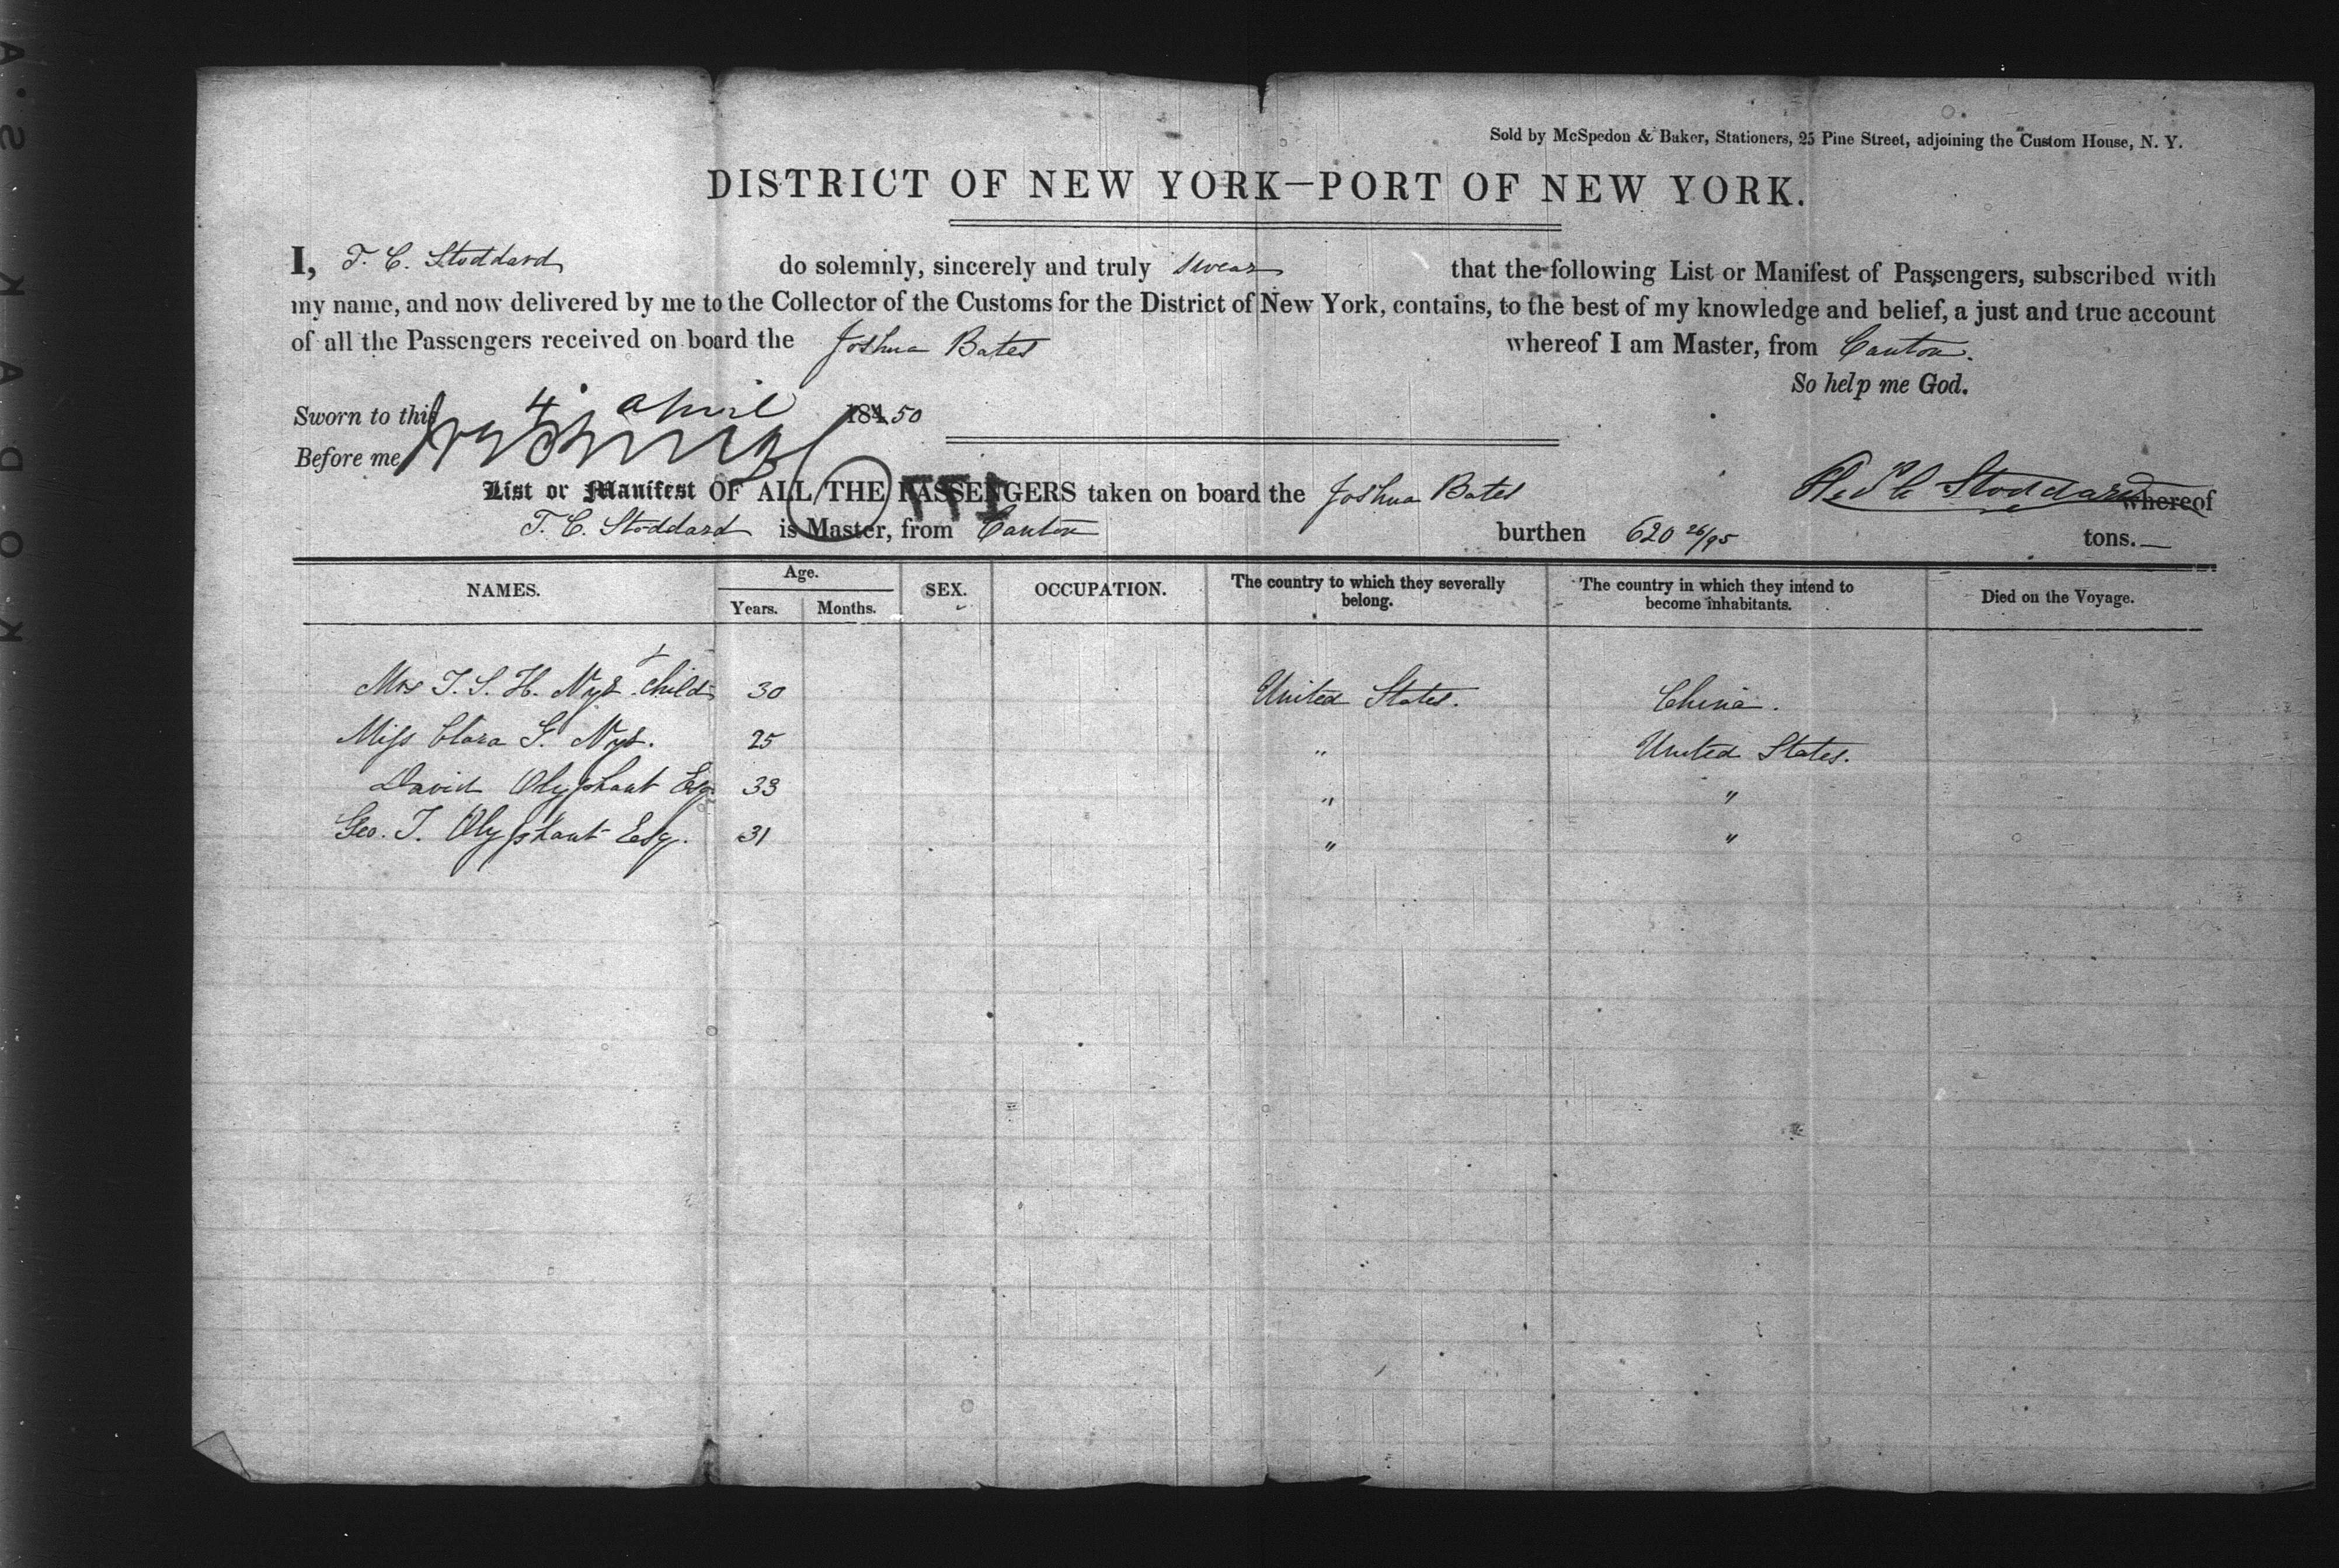 Sold by McSpedon & Baker, Stationers, 25 Pine Street, adjoining the Custom House, N. Y.
DISTRICT OF NEW YORK—PORT OF NEW YORK.
I, T. C. Stoddard do solemnly, sincerely and truly swear that the following List or Manifest of Passengers, subscribed with
my name, and now delivered by me to the Collector of the Customs for the District of New York, contains, to the best of my knowledge and belief, a just and true account
of all the Passengers received on board the Joshua Bates whereof I am Master, from Canton.
So help me God.
Sworn to this 4 April 184 50
Before me
Stoddard
List or Manifest OF ALL THE PASSENGERS taken on board the Joshua Bates whereof
T. C. Stoddard is Master, from Canton burthen 620 26/95 tons.
NAMES. Age. Years. Months. SEX. OCCUPATION. The country to which they severally belong. The country in which they intend to become inhabitants. Died on the Voyage.
Mrs T. S. H. Nye & child 30 United States. China.
Miss Clara S. Nye. 25 " United States.
David Olyphant Esq. 33 " "
Geo. T. Olyphant Esq. 31 " "
KODAK S.A